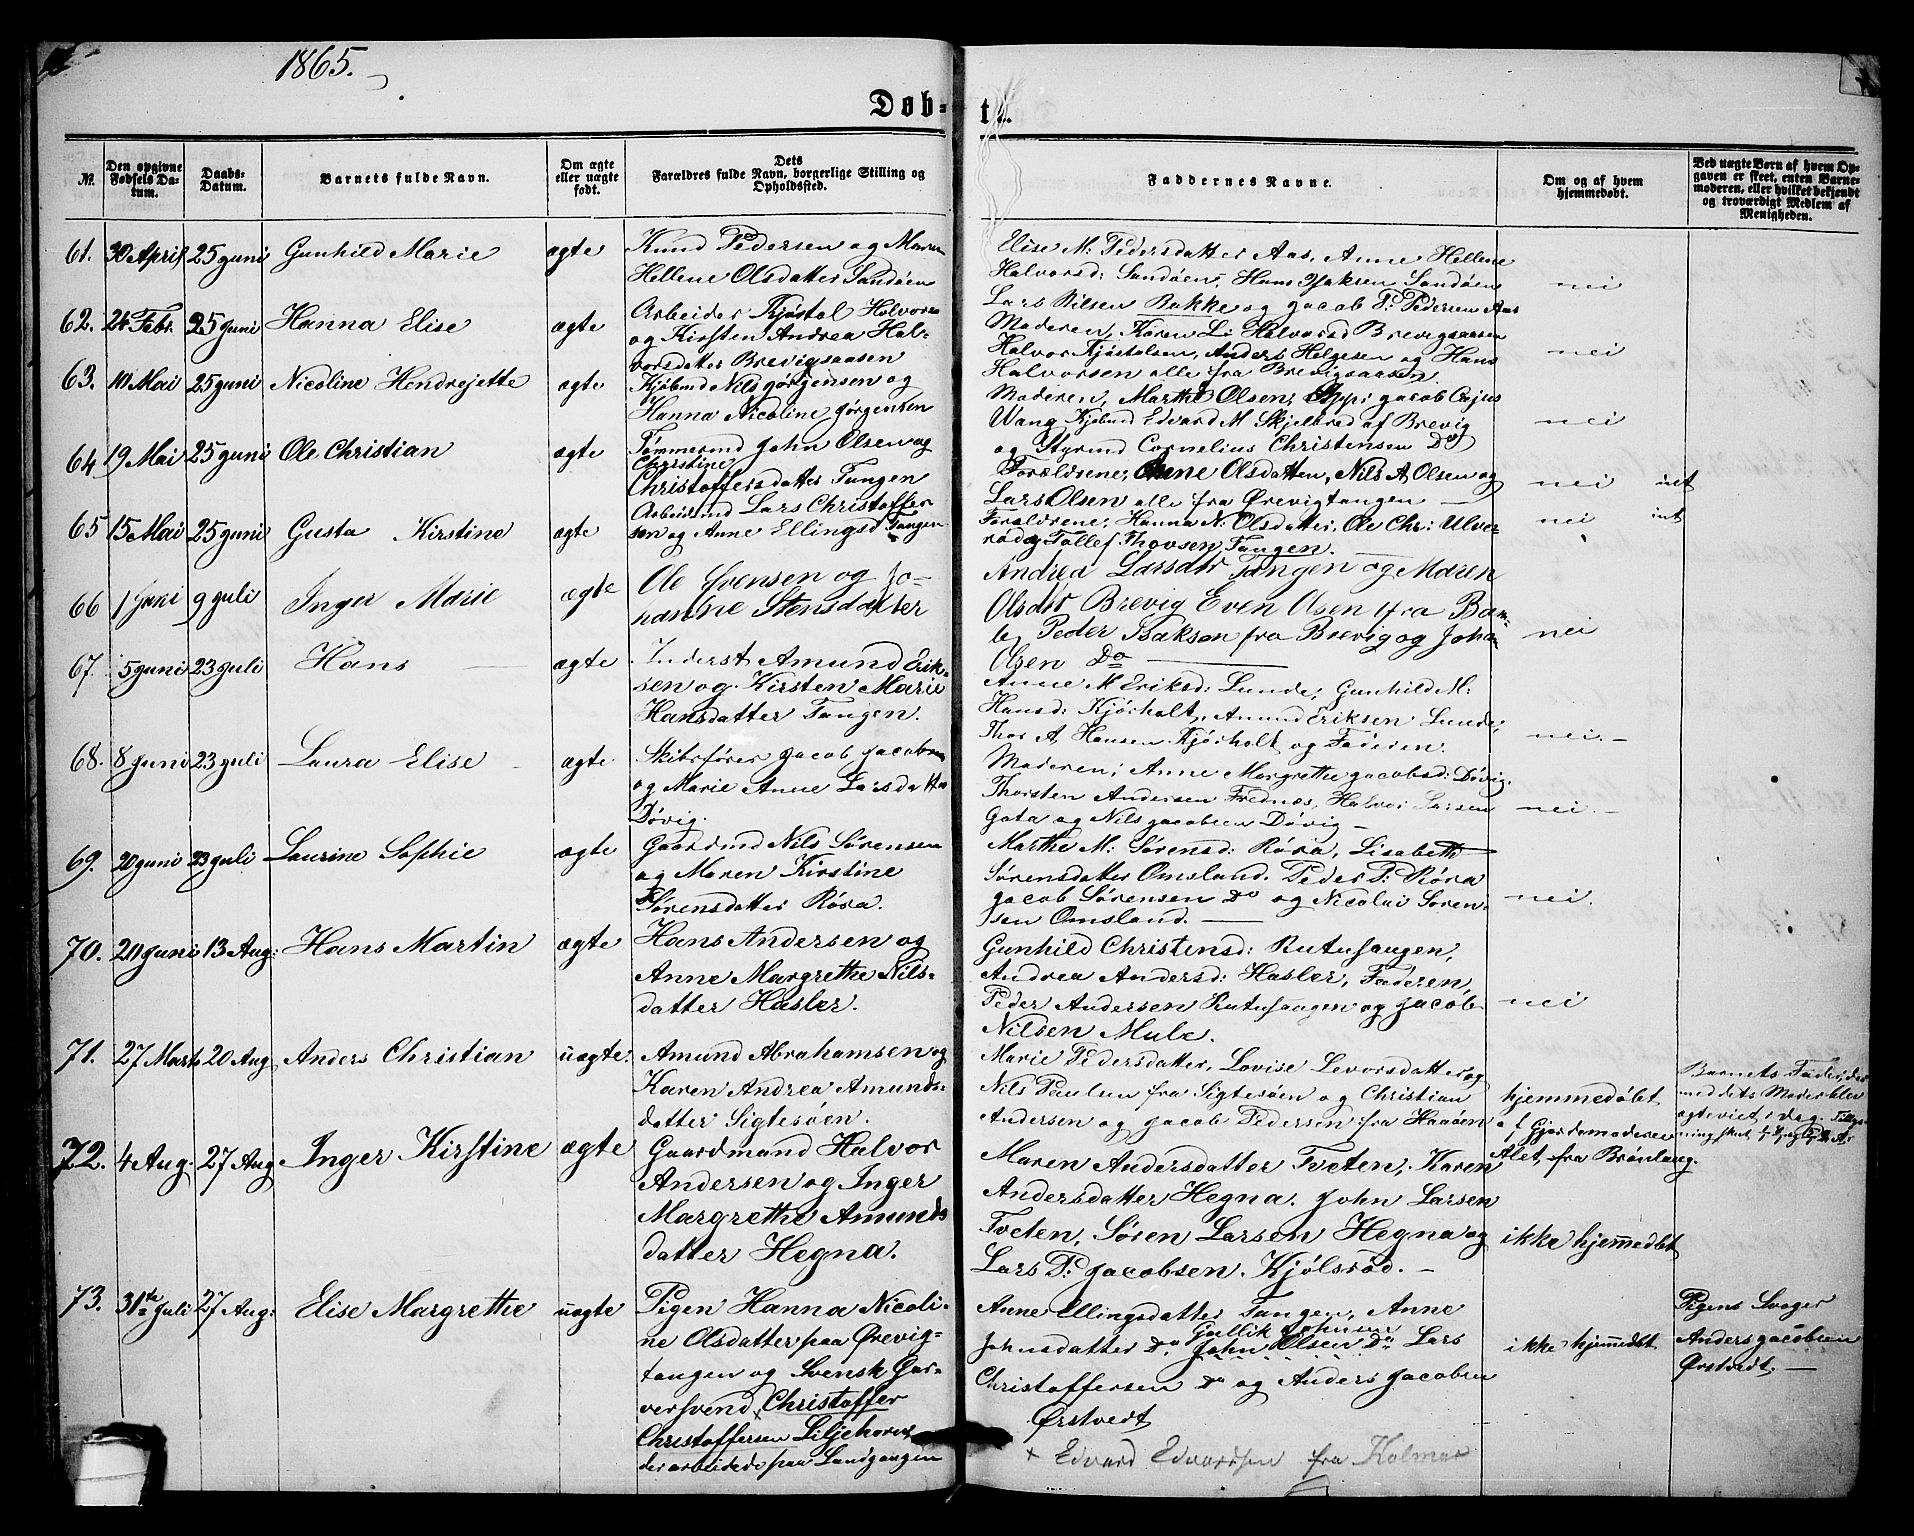 1865.
Døb-
te.
№.
Den opgivne Fødsels Datum.
Daabs-Datum.
Barnets fulde Navn.
Om ægte eller uægte født.
Dets Forældres fulde Navn, borgerlige Stilling og Opholdssted.
Faddernes Navne.
Om og af hvem hjemmedøbt.
Ved uægte Børn af hvem Opgaven er skeet, enten Barnemoderen, eller hvilket bekjendt og troværdigt Medlem af Menigheden.
61. 30 April 25 Juni Gunhild Marie ægte
Knud Pedersen og Maren
Hellene Olsdatter Sandøen
Elise M: Pedersdatter Aas, Anne Hellene
Halvorsd: Sandøen, Hans Isaksen Sandøen
Lars Nilsen Bakke og Jacob P: Pedersen Aas
nei
62. 24 Febr. 25 Juni Hanna Elise ægte
Arbeider Kjøstol Halvorsen
og Kirsten Andrea Hal-
vorsdatter Brevigsaasen
Moderen, Karen L: Halvorsd Brevigsaasen
Halvor Kjøstolsen, Anders Helgesen og Hans
Halvorsen alle fra Brevigsaasen
nei
63. 10 Mai 25 Juni Nicoline Hendrejette ægte
Kjøbmd Nils Jørgensen og
Hanna Nicoline Jørgensen
Moderen, Marthe Olsen, Jacob Cajus
Wang Kjøbmd Edvard M Skjelbred af Brevig
og Styrmd Cornelius Christensen Do
nei
64 19 Mai 25 Juni Ole Christian ægte
Tømmermd John Olsen og
Christine
Christoffersdatter Tangen
Forældrene, Anne Olsdatter, Nils A Olsen og
Lars Olsen alle fra Ørevigtangen
nei int
65 15 Mai 25 Juni Gusta Kirstine ægte
Arbeidsmd Lars Christoffer
sen og Anne Ellingsd Tangen
Forældrene, Hanna N: Olsdatter, Ole Chr: Ulve-
rød og Tollef Thovsen Tangen.
nei int
66 1 Juni 9 Juli Inger Marie ægte
Ole Svensen og Jo-
hanne Stensdatter
Andrea Larsdtr Tangen og Maren
Olsdtr Brevig Even Olsen fra Bam-
le, Peder Isaksen fra Brevig og Johan
Olsen Do
nei
67. 5 Juni 23 Juli Hans ægte
Inderst Amund Erik-
sen og Kirsten Marie
Hansdatter Tangen.
Anne M Eriksd: Lunde, Gunhild M:
Hansd: Kjørholt, Amund Eriksen Lunde,
Thor A Hansen Kjørholt og Faderen.
nei.
68. 8 Juni 23 Juli Laura Elise ægte
Skibsfører Jacob Jacobsen
og Marie Anne Larsdatter
Døvig.
Moderen, Anne Margrethe Jacobsd: Døvig.
Thorsten Andersen Frednes, Halvor Larsen
Gata og Nils Jacobsen Døvig
nei.
69. 20 Juni 23 Juli Laurine Sophie ægte
Gaardmd Nils Sørensen
og Maren Kirstine
Sørensdatter Røra.
Marthe M: Sørensd: Røra, Lisabeth
Sørensdatter Omsland. Peder P: Røra
Jacob Sørensen Do og Nicolai Søren-
sen Omsland.
nei.
70. 20 Juni 13 Aug: Hans Martin ægte
Hans Andersen og
Anne Margrethe Nils-
datter Hasler.
Gunhild Christensd: Rutufsaugen,
Andrea Andersd: Hasler, Faderen,
Peder Andersen Rutufsaugen og Jacob
Nilsen Mule.
nei
71. 27 Marts 20 Aug Anders Christian uægte.
Amund Abrahamsen og
Karen Andrea Amunds-
datter Sigtesøen.
Marie Pedersdatter, Lovise Levorsdatter og
Nils Paulsen fra Sigtesøen og Christian
Andersen og Jacob Pedersen fra Haaøen
hjemmedøbt
af Gjordemoderen
Alet, fra Brønlaug.
Barnets Fader, der
med dets Moder blev
ægteviet i dag.
72. 4 Aug. 27 Aug Inger Kirstine ægte
Gaardmand Halvor
Andersen og Inger
Margrethe Amunds
datter Hegna.
Maren Andersdatter Tveten, Karen
Andersdatter Hegna. John Larsen
Tveten, Søren Larsen Hegna og
Lars P: Jacobsen. Kjølsrød.
ikke hjemmedbt
73. 31te Juli 27 Aug: Elise Margrethe uægte
Pigen Hanna Nicoli-
ne Olsdatter paa Ørevig-
tangen og Svensk Gar-
versvend × Christoffer
Christoffersen Liljehorn
der arbeidede paa Landgangen
Anne Ellingsdatter Tangen, Anne
Gullik Johnsen
Johnsdatter Do John Olsen Do Lars
Christoffersen Do og Anders Jacobsen
Ørstvedt
× Edvard Edvardsen fra Kalmar
ikke hjemmedbt
Pigens Svoger
Anders Jacobsen
Ørstvedt.